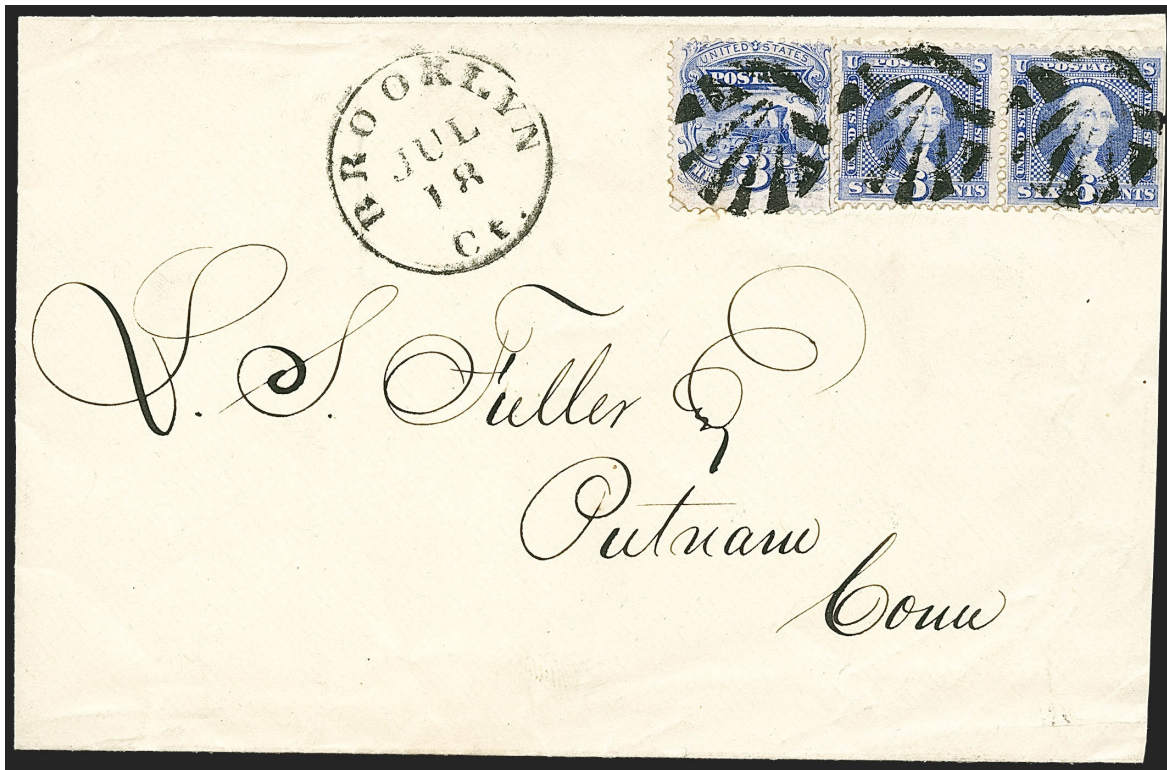 BROOKLYN
JUL
18
Ct.
UNITED STATES
POSTAGE
3
U POSTAGE S
SIX 6 CENTS
U POSTAGE S
SIX 6 CENTS
V. S. Fuller
Putnam
Conn